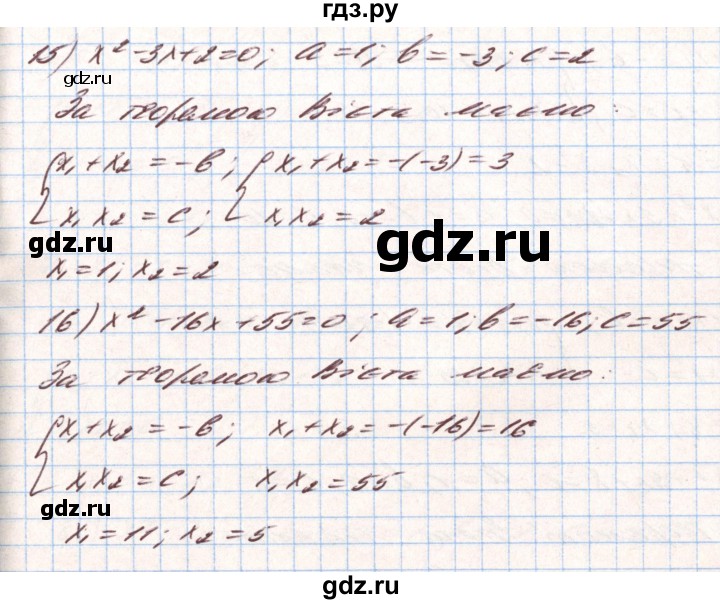 гдз.ру
15) x² - 3x + 2 = 0; a = 1; b = -3; c = 2
gdz.ru
За теоремою Вієта маємо:
{ x₁ + x₂ = -b; { x₁ + x₂ = -(-3) = 3
x₁x₂ = c; x₁x₂ = 2
gdz.ru
gdz.ru
x₁ = 1; x₂ = 2
16) x² - 16x + 55 = 0; a = 1; b = -16; c = 55
За теоремою Вієта маємо:
{ x₁ + x₂ = -b; x₁ + x₂ = -(-16) = 16
x₁x₂ = c; x₁x₂ = 55
gdz.ru
gdz.ru
x₁ = 11; x₂ = 5
gdz.ru